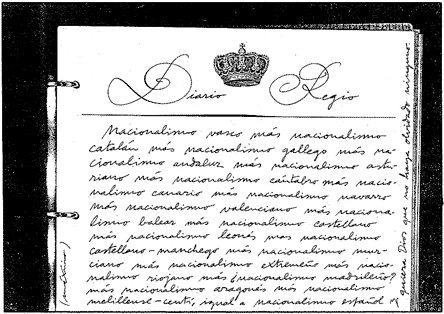 Diario Regio
Nacionalismo vasco más nacionalismo
catalán más nacionalismo gallego más na-
cionalismo andaluz más nacionalismo astu-
riano más nacionalismo cántabro más nacio-
nalismo canario más nacionalismo navarro
más nacionalismo valenciano más naciona-
lismo balear más nacionalismo castellano
más nacionalismo leonés más nacionalismo
castellano-manchego más nacionalismo mur-
ciano más nacionalismo extremeño más nacio-
nalismo riojano más ¿nacionalismo madrileño?
más nacionalismo aragonés más nacionalismo
melillense-ceutí, igual a nacionalismo español
quiera Dios que no haya olvidado ninguno